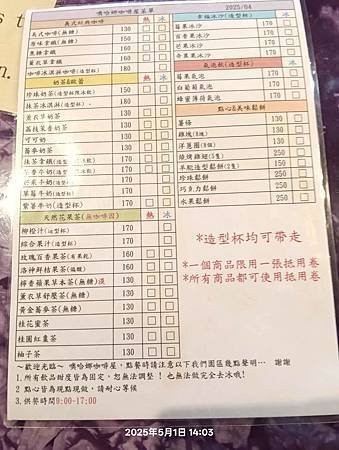 噢哈娜咖啡屋菜單 2025/04
美式經典咖啡 熱 冰
美式咖啡(無糖) 130
原味拿鐵(無糖) 150
黑糖拿鐵 160
薰衣草拿鐵 160
咖啡冰淇淋咖啡(造型杯) 180
奶茶&歐蕾
珍珠奶茶(造型杯限冰飲) 170
抹茶冰淇淋(造型杯) 180
薰衣草奶茶 150
荔枝菓香奶茶 150
可可奶 150
蕎麥奶茶 150
紫薯牛奶(造型杯) 170
天然花菓茶(無咖啡因) 熱 冰
柳橙汁(造型杯) 170
綜合果汁(造型杯) 170
玫瑰百香果茶(有果乾) 160
洛神鮮桔果茶(偏酸) 160
檸香蘋果草本茶(無糖)淡 130
薰衣草舒壓茶(無糖) 130
黃金蕎麥茶(無糖) 130
桂花蜜茶 130
桂圓紅棗茶 150
柚子茶 150
幸福冰沙(造型杯) 冰
莓果冰沙 180
百香果冰沙 180
芒果冰沙 180
奇異果冰沙 180
氣泡飲(造型杯) 冰
莓果氣泡 170
白葡萄氣泡 170
蜂蜜薄荷氣泡 170
點心&美味鬆餅
薯條 130
雞塊(8塊) 130
洋蔥圈(8個) 130
燒烤雞翅(5隻) 150
羊肚起司雞翅(2隻) 150
珍珠鬆餅 250
巧克力鬆餅 250
水果鬆餅 250
*造型杯均可帶走
*一個商品限用一張抵用卷
*所有商品都可使用抵用卷
～歡迎光臨～ 噢哈娜咖啡屋，點餐時請注意以下我們園區幾點聲明… 謝謝
1.所有飲品甜度皆為固定，恕無法調整！也無法做完全去冰哦!
2.點心皆為現點現做，請耐心等候
3.供餐時間9:00-17:00
2025年5月1日 14:03